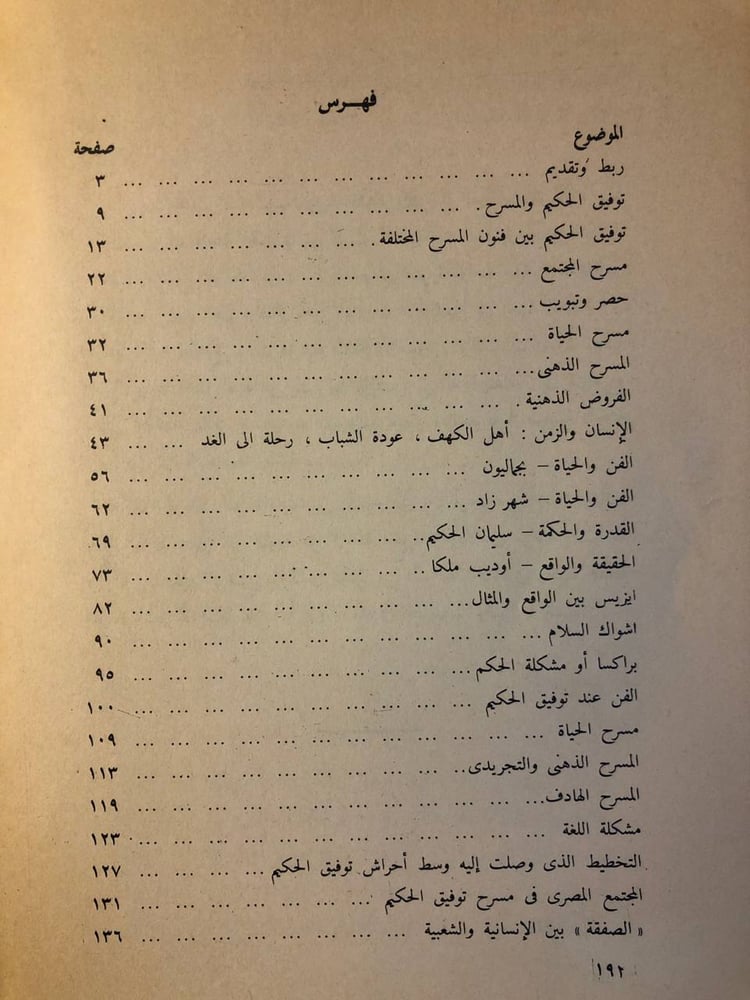 فهـرس
الموضوع صفحة
ربط وتقديم ... ... ... ... ... ... ... ... ... ... ... ... ٣
توفيق الحكيم والمسرح . ... ... ... ... ... ... ... ... ... ... ٩
توفيق الحكيم بين فنون المسرح المختلفة . ... ... ... ... ... ... ... ١٣
مسرح المجتمع ... ... ... ... ... ... ... ... ... ... ... ... ٢٢
حصر وتبويب ... ... ... ... ... ... ... ... ... ... ... ... ٣٠
مسرح الحياة ... ... ... ... ... ... ... ... ... ... ... ... ٣٢
المسرح الذهنى ... ... ... ... ... ... ... ... ... ... ... ... ٣٦
الفروض الذهنية . ... ... ... ... ... ... ... ... ... ... ... ٤١
الإنسان والزمن : أهل الكهف ، عودة الشباب ، رحلة الى الغد ... ... ٤٣
الفن والحياة – بجماليون ... ... ... ... ... ... ... ... ... ... ٥٦
الفن والحياة – شهر زاد ... ... ... ... ... ... ... ... ... ... ٦٢
القدرة والحكمة – سليمان الحكيم .. ... ... ... ... ... ... ... ... ٦٩
الحقيقة والواقع – أوديب ملكا .. ... ... ... ... ... ... ... ... ٧٣
ايزيس بين الواقع والمثال ... ... ... ... ... ... ... ... ... ... ٨٢
اشواك السلام ... ... ... ... ... ... ... ... ... ... ... ... ٩٠
براكسا أو مشكلة الحكم ... ... ... ... ... ... ... ... ... ... ٩٥
الفن عند توفيق الحكيم ... ... ... ... ... ... ... ... ... ... ١٠٠
مسرح الحياة ... ... ... ... ... ... ... ... ... ... ... ... ١٠٩
المسرح الذهنى والتجريدى .. ... ... ... ... ... ... ... ... ... ١١٣
المسرح الهادف ... ... ... ... ... ... ... ... ... ... ... ... ١١٩
مشكلة اللغة ... ... ... ... ... ... ... ... ... ... ... ... ١٢٣
التخطيط الذى وصلت إليه وسط أحراش توفيق الحكيم ... ... ... ... ١٢٧
المجتمع المصرى فى مسرح توفيق الحكيم ... ... ... ... ... ... ... ١٣١
« الصفقة » بين الإنسانية والشعبية ... ... ... ... ... ... ... ... ١٣٦
١٩٢